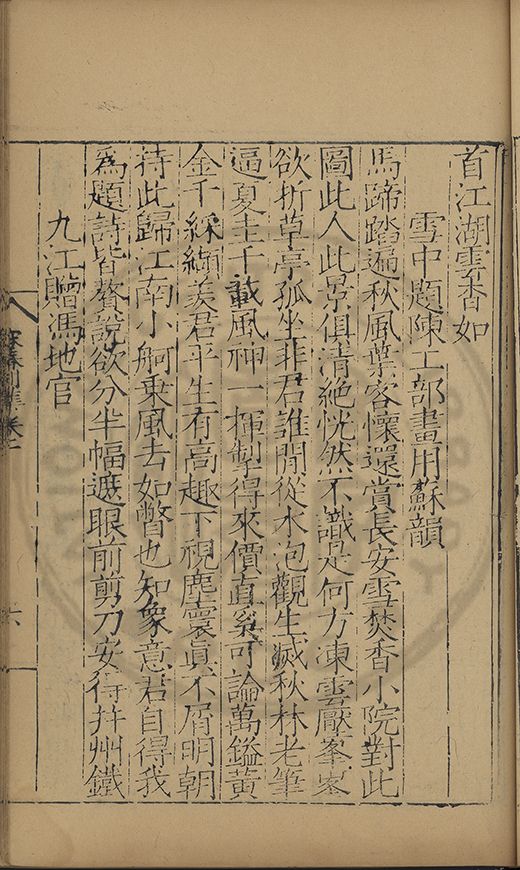 首江湖雲杳如
雪中題陳工部畫用蘇韻
馬蹄踏遍秋風葉客懷還賞長安雪焚香小院對此
圖此人此景俱清絶恍然不識是何方凍雲壓峯峯
欲折草亭孤坐非君誰閒從水泡觀生滅秋林老筆
逼夏圭千載風神一揮掣得來價直奚可論萬鎰黃
金千綵纈羨君平生有高趣下視塵寰眞不屑明朝
持此歸江南小舸乗風去如瞥也知象意君自得我
爲題詩皆聱說欲分半幅遮眼前剪刀安得并州鐵
九江贈馮地官
卷二
六